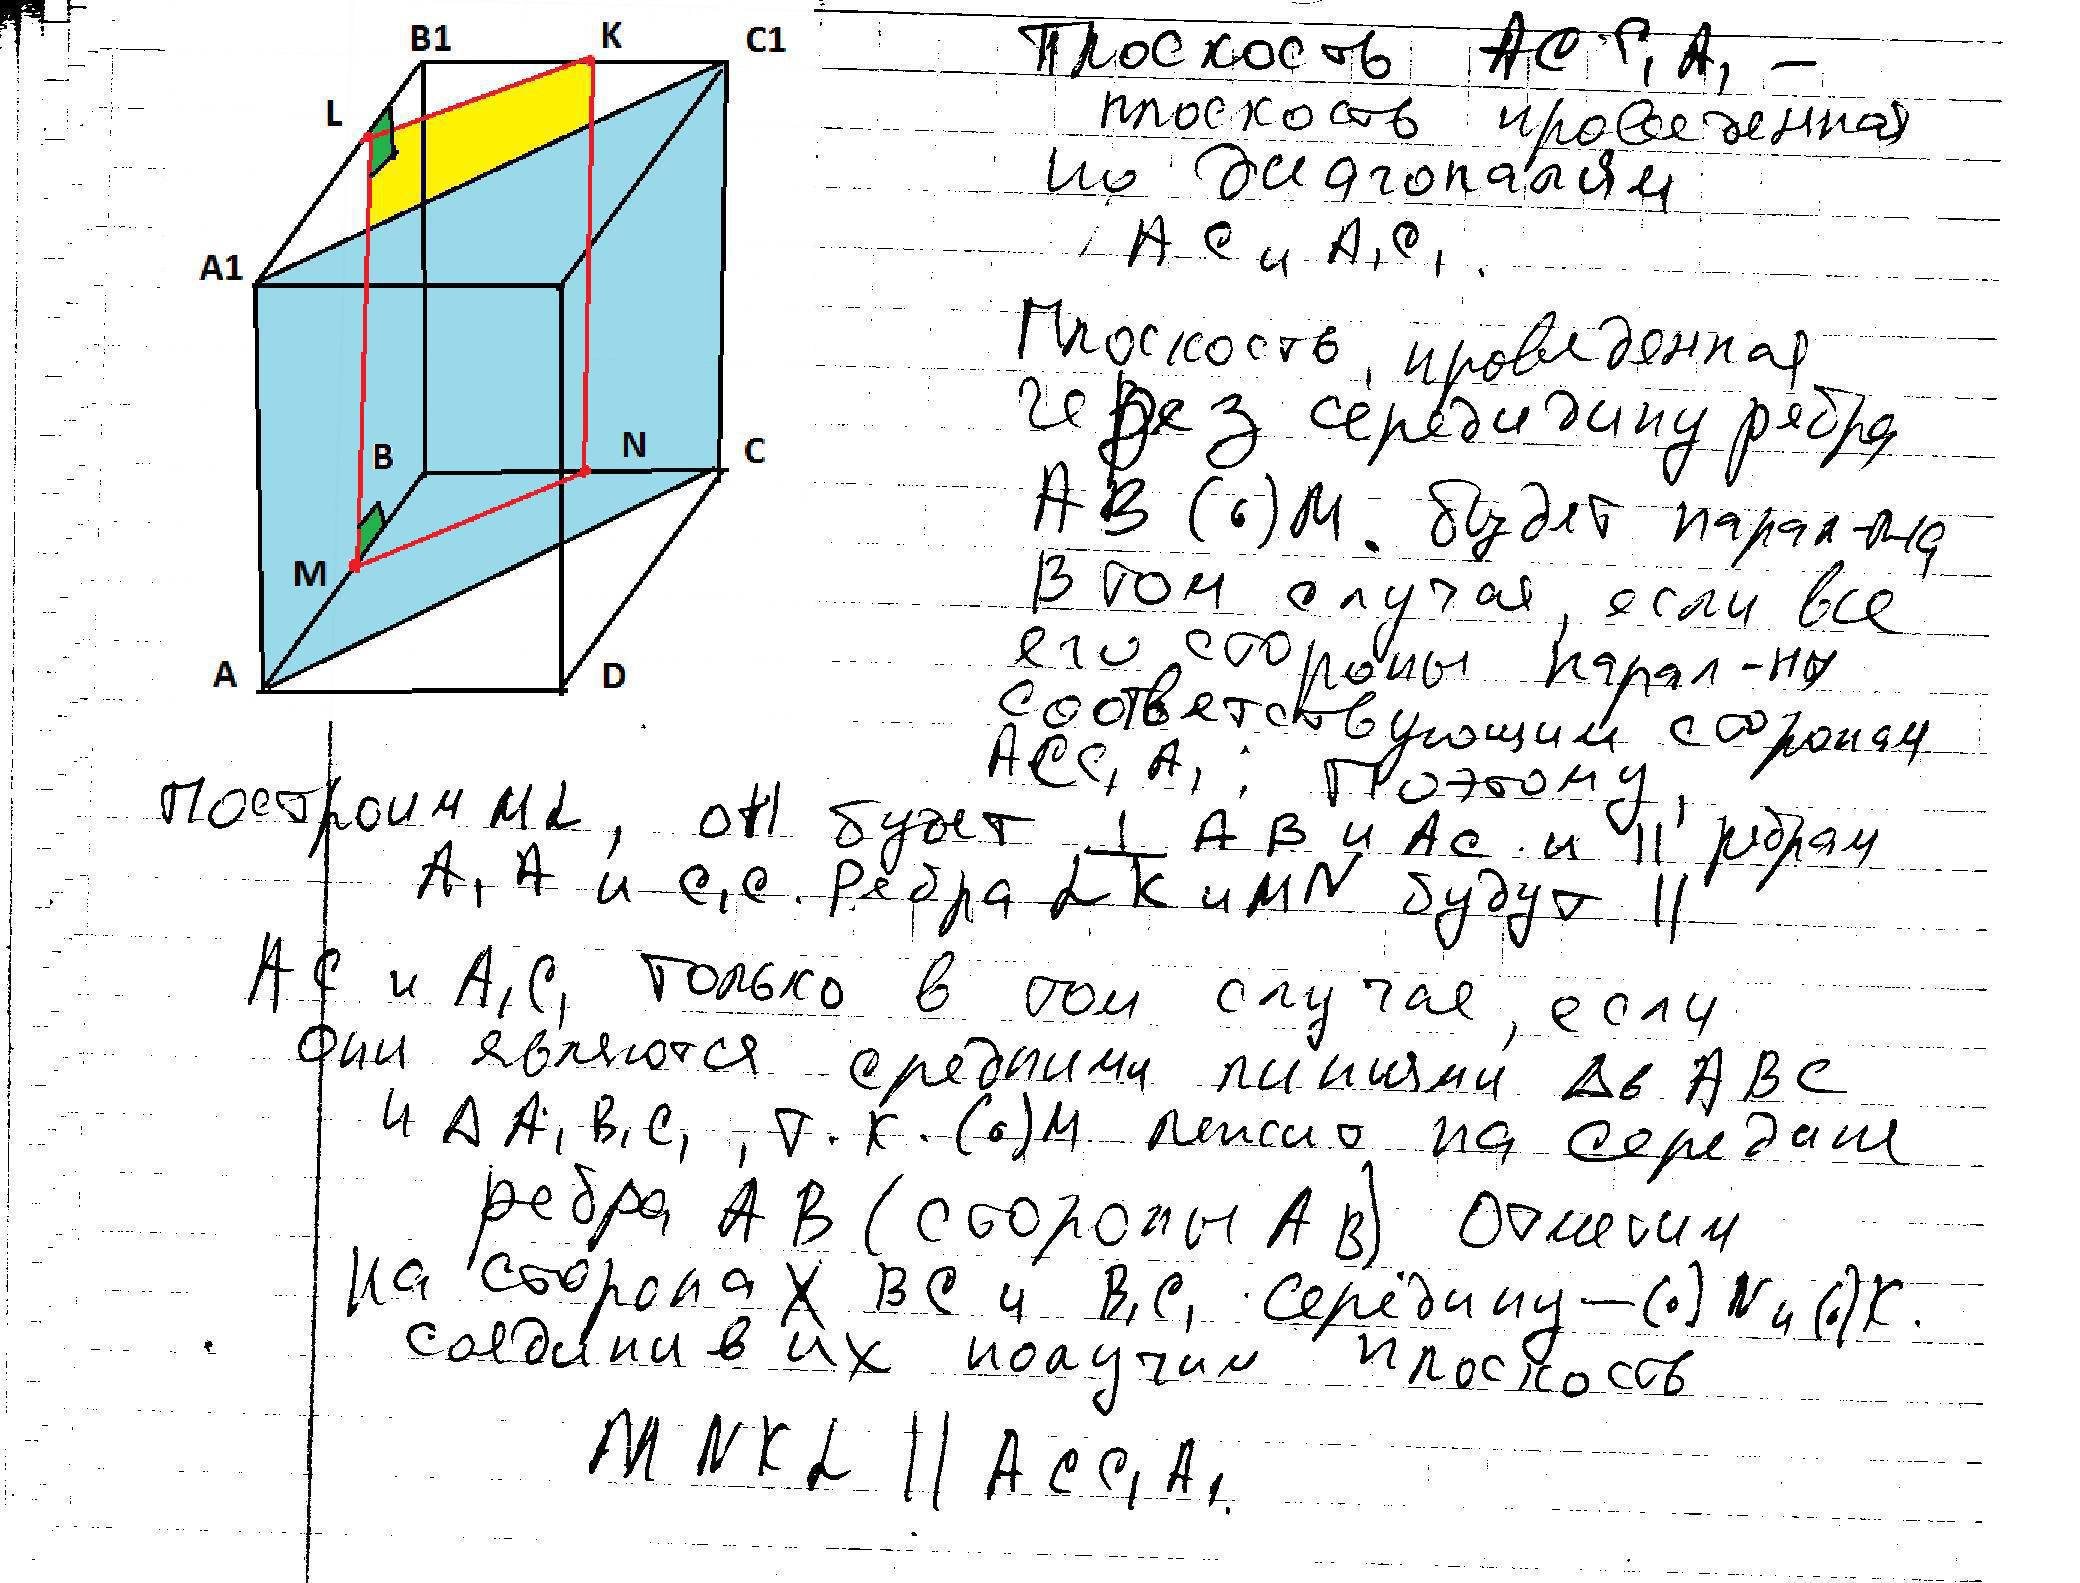 B1 K C1
L
A1
B N C
M
A D
Плоскость АСС₁А₁ –
плоскость проведенная
по диагоналям
АС и А₁С₁.
Плоскость, проведенная
через серединину ребра
АВ (•)М. будет парал-на
в том случае, если все
его стороны парал-ны
соответствующим сторонам
АСС₁А₁; Поэтому,
Построим МL, он будет ⊥ АВ и АС и || ребрам
А₁А и С₁С. Ребра LK и MN будут ||
АС и А₁С₁ только в том случае, если
они являются средними линиями Δв АВС
и Δ А₁В₁С₁, т.к. (•)М лежит на середине
ребра АВ (стороны АВ) Отметим
на сторонах ВС и В₁С₁ середину – (•)N и (•)К.
соединив их получим плоскость
MNKL || АСС₁А₁.